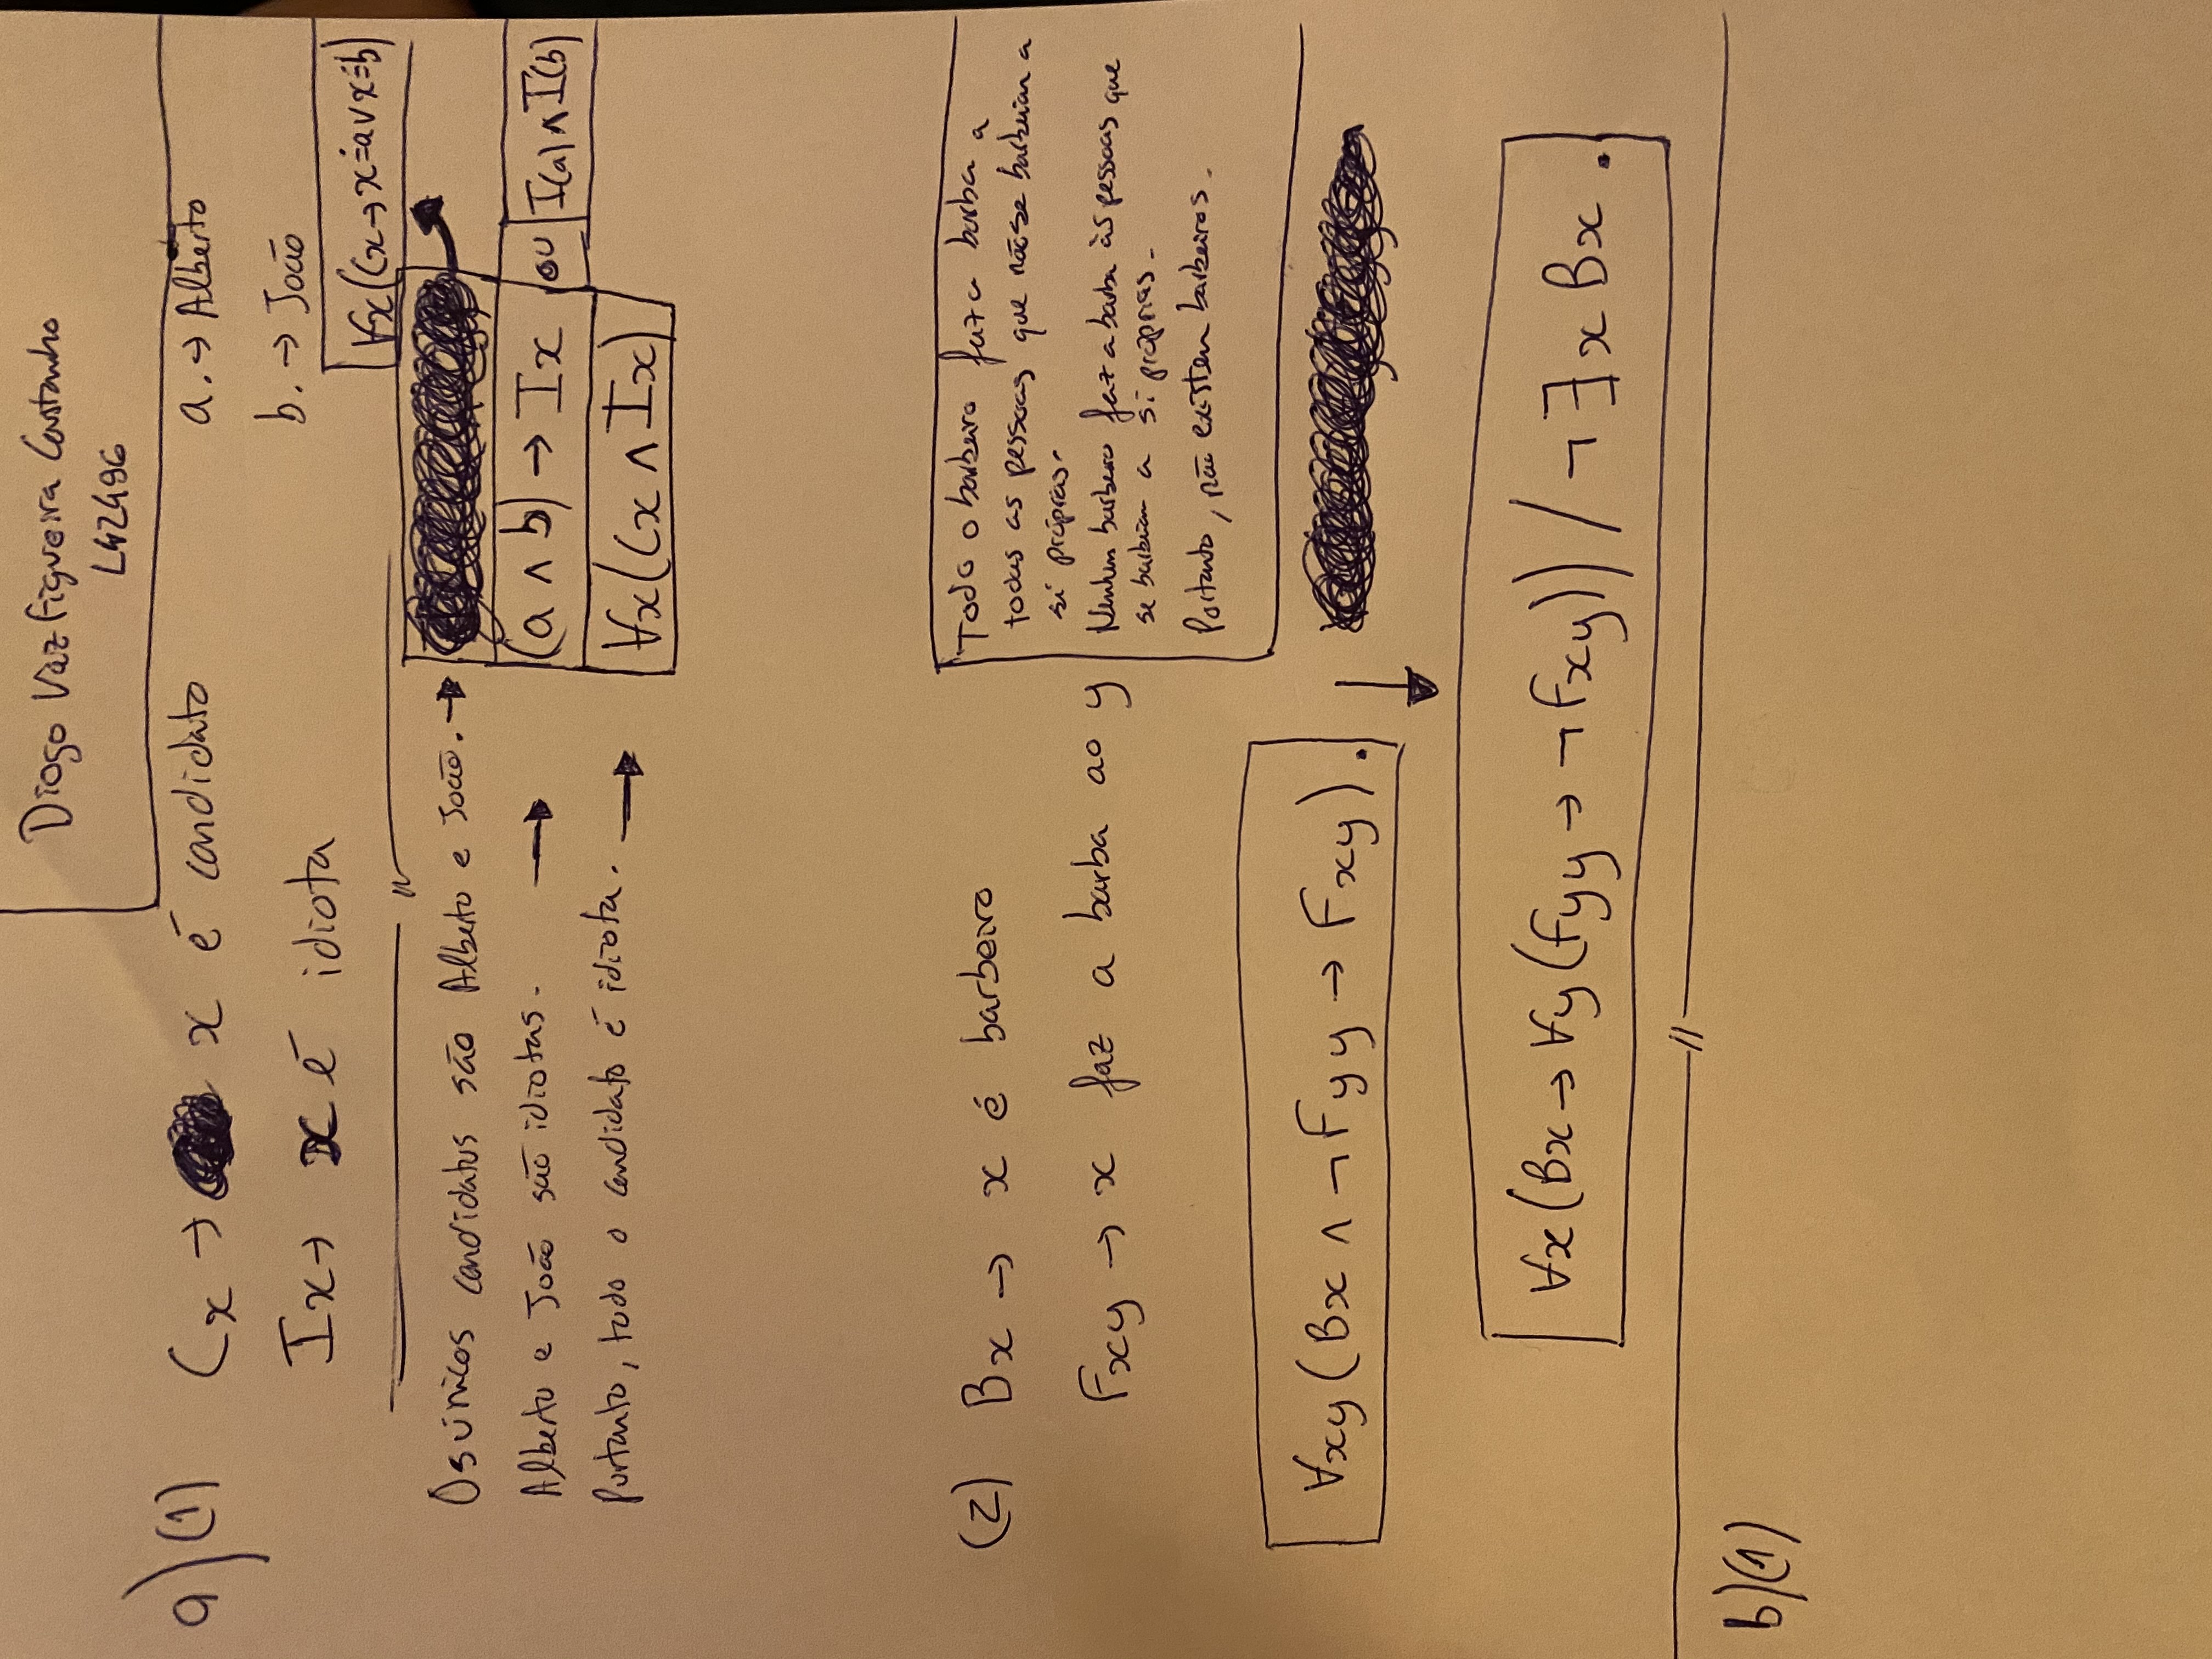 Diogo Vaz Figueira Castanho
L42496
a)(1) Cx → x é candidato
a. → Alberto
Ix → x é idiota
b. → João
∀x(Cx → x≐a ∨ x≐b)
Os únicos candidatos são Alberto e João. →
Alberto e João são idiotas. → (a ∧ b) → Ix ou I(a) ∧ I(b)
Portanto, todo o candidato é idiota. → ∀x(Cx ∧ Ix)
(2) Bx → x é barbeiro
Fxy → x faz a barba ao y
Todo o barbeiro faz a barba a
todas as pessoas que não se barbeiam a
si próprias.
Nenhum barbeiro faz a barba às pessoas que
se barbeiam a si próprias.
Portanto, não existem barbeiros.
∀xy(Bx ∧ ¬Fyy → Fxy).
∀x(Bx → ∀y(Fyy → ¬Fxy)) / ¬∃x Bx.
b)(1)